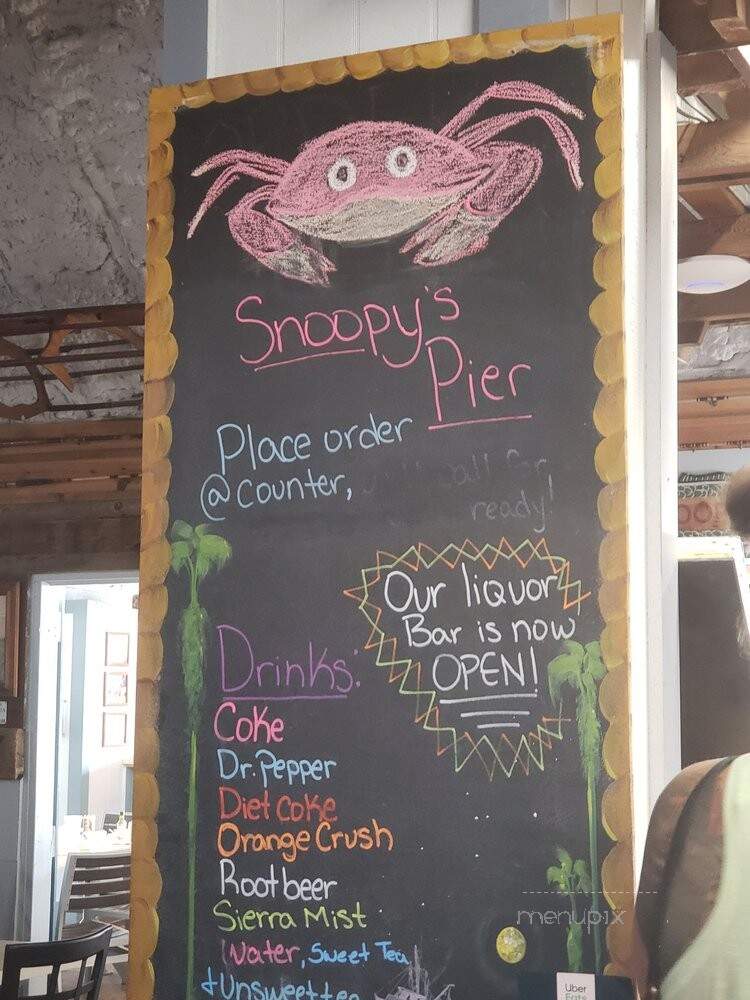 Snoopy's
Pier
Place order
@ counter,
all for
ready!
Our liquor
Bar is now
OPEN!
Drinks:
Coke
Dr. Pepper
Diet coke
Orange Crush
Root beer
Sierra Mist
Water, Sweet Tea,
+ Unsweet tea
menupix
Uber
Eats